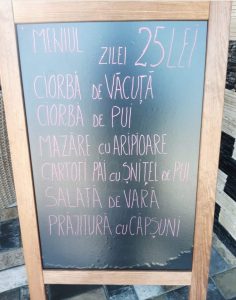 MENIUL ZILEI 25 LEI
CIORBĂ DE VĂCUȚĂ
CIORBĂ DE PUI
MAZĂRE CU ARIPIOARE
CARTOFI PAI CU ȘNIȚEL DE PUI
SALATĂ DE VARĂ
PRĂJITURĂ CU CĂPȘUNI